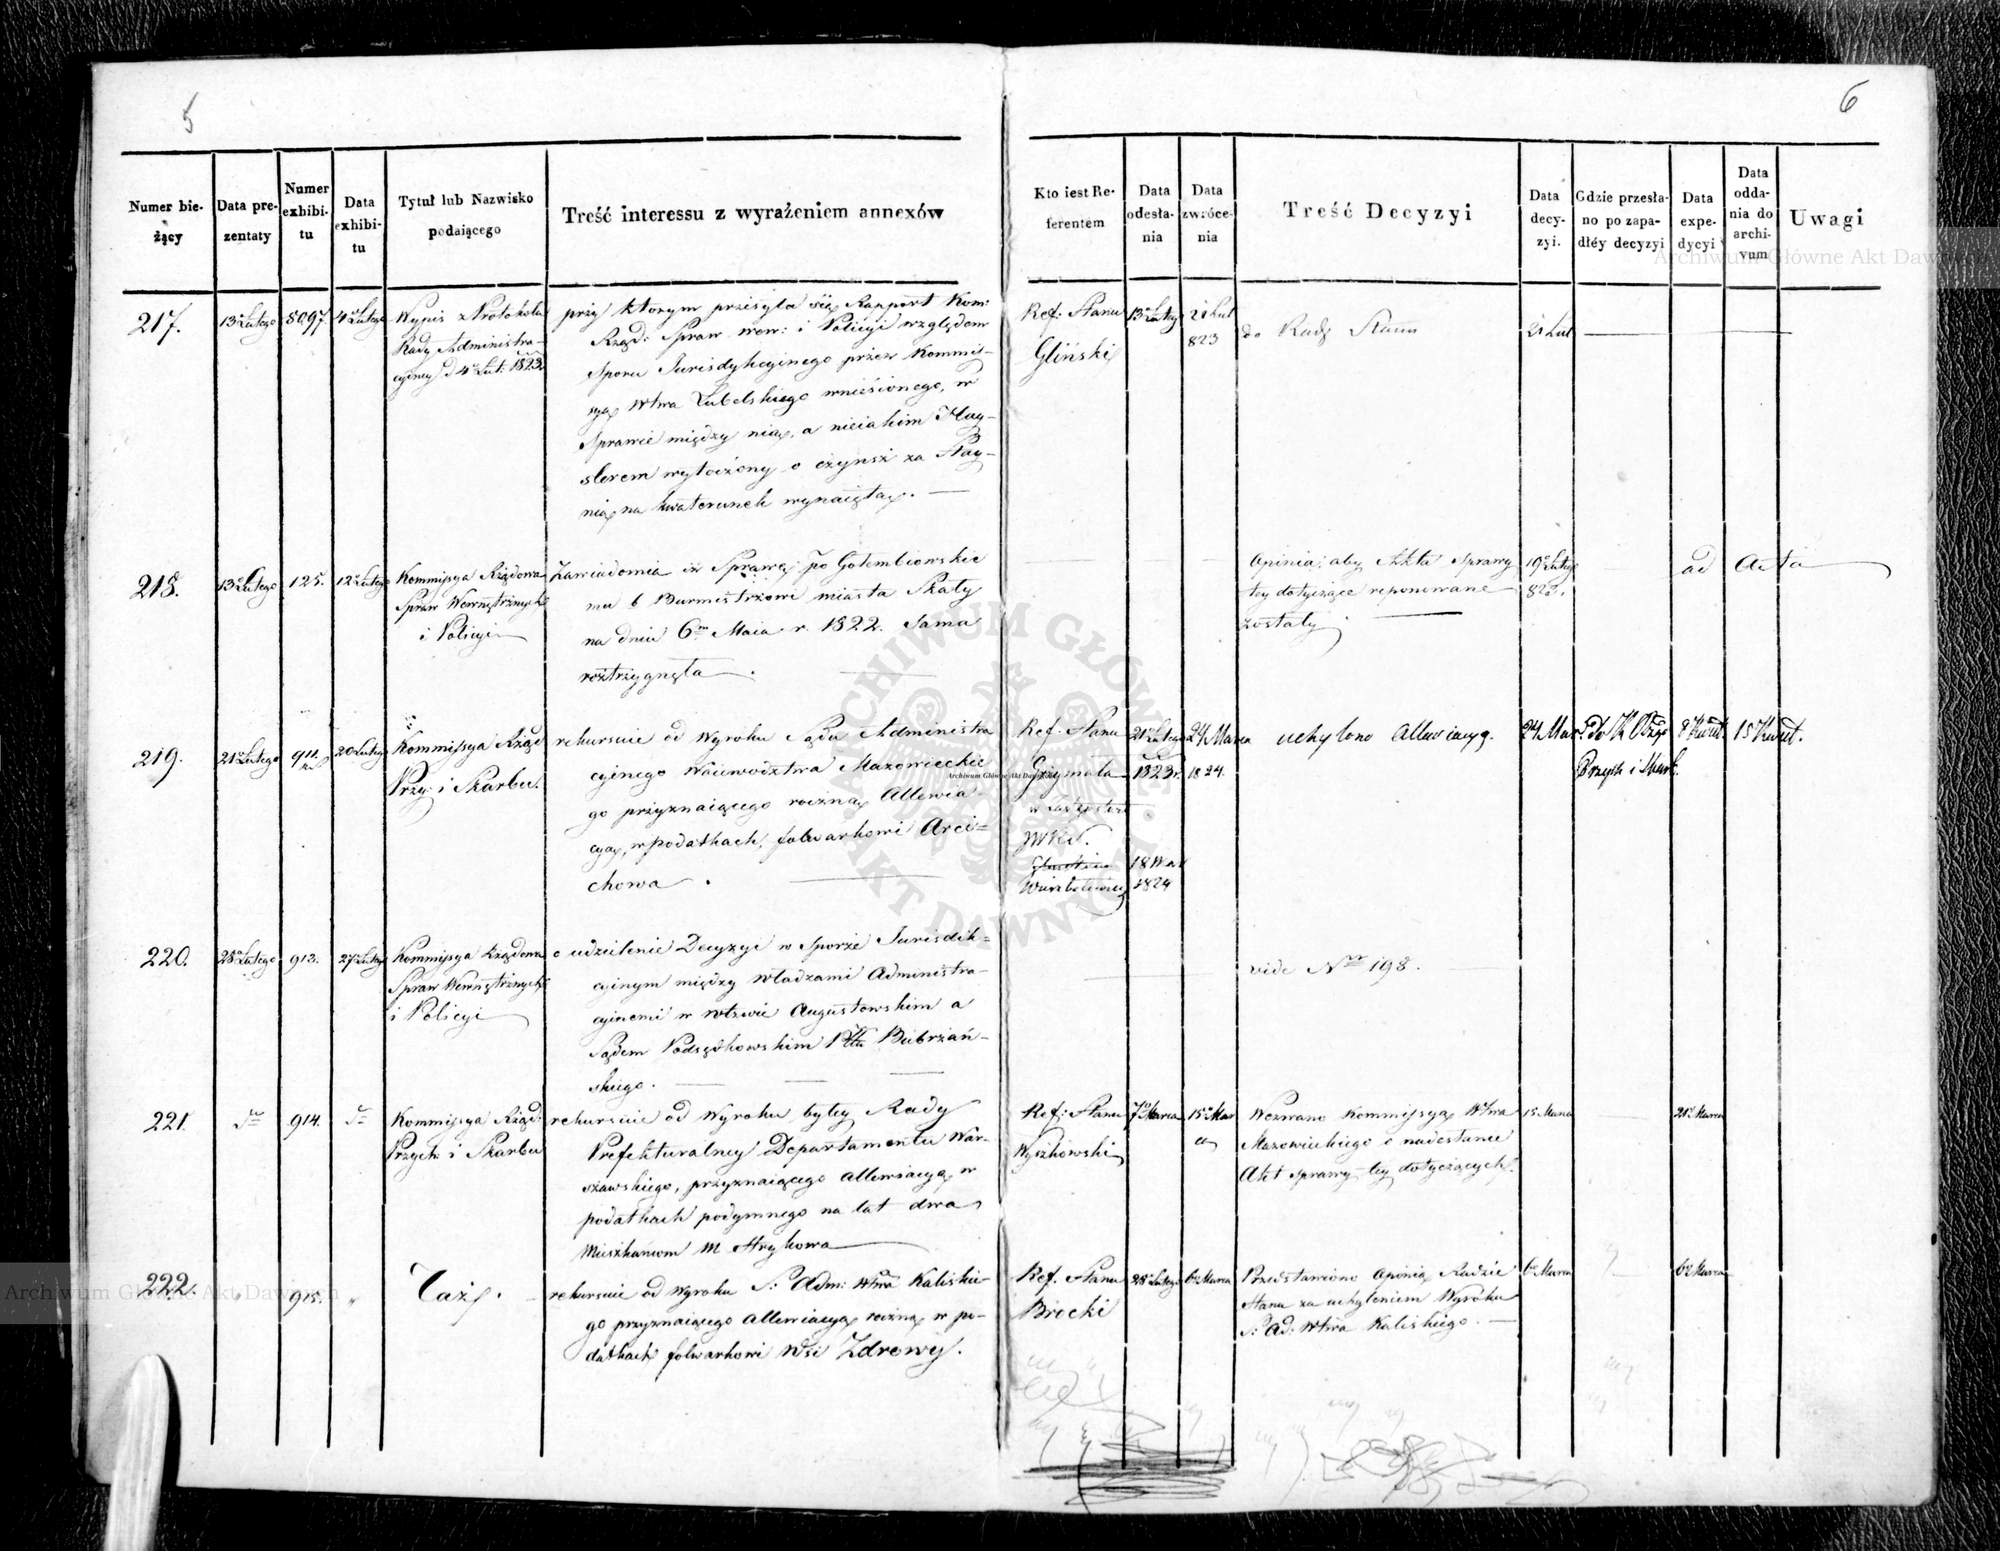 5
6
Numer bie-
żący
Data pre-
zentaty
Numer
exhibi-
tu
Data
exhibi-
tu
Tytuł lub Nazwisko
podaiącego
Treść interessu z wyrażeniem annexów
Kto iest Re-
ferentem
Data
odesła-
nia
Data
zwróce-
nia
Treść Decyzyi
Data
decy-
zyi.
Gdzie przesła-
no po zapa-
dłéy decyzyi
Data
expe-
dycyi
Data
odda-
nia do
archi-
vum
Uwagi
217.
13 Lutego
8097
4 Lutego
Wypis z Protokołu
Rady Administra-
cyiney d 4 Lut: 1823.
przy ktorym przesyła się Rapport Kom:
Rząd: Spraw Wew: i Policyi względem
Sporu Jurisdykcyinego przez Kommis-
syą Wtwa Lubelskiego wniesionego, w
Sprawie między nią, a nieiakim Hay-
slerem wytoczony o czynsz za Stay-
nią na kwaterunek wynaiętą.
Ref: Stanu
Gliński
13 Luteg
21 Lut
823
do Rady Stanu
21 Lut
218.
13 Lutego
125.
12 Lutego
Kommissya Rządowa
Spraw Wewnętrznych
i Policyi
Zawiadomia iż Sprawę po Gołembiowskie
mu b Burmistrzowi miasta Skały
na dniu 6 Maia r. 1822. Sama
roztrzygnęła.
Opinia: aby Akta Sprawy
tey dotyczące reponowane
zostały.
19 Luteg
823.
ad Acta
219.
21 Lutego
911.
20 Lutego
Kommissya Rząd
Przy: i Skarbu.
rekursuie od Wyroku Sądu Administra
cyinego Woiewodztwa Mazowieckie
go przyznaiącego roczną Allewia-
cyą, w podatkach, folwarkowi Arci=
chowa.
Ref: Stanu
Grzymała
w zastępstwie
18 Mar
1824
21 Lutego
1823 r.
24 Marca
1824.
uchylono Allewiacyą.
24 Mar
do K Rząd
Przych i Skarb.
8 Kwiet.
15 Kwiet.
220.
28 Lutego
913.
27 Luteg
Kommissya Rządowa
Spraw Wewnętrznych
i Policyi
o udzielenie Decyzyi w Sporze Jurisdik=
cyinym między władzami Administra-
cyinemi w Wtwie Augustowskim a
Sądem Podsędkowskim Pttu Biebrzań-
skiego.
vide Nro 198.
221.
914.
Kommissya Rząd:
Przych: i Skarbu
rekursuie od Wyroku byłey Rady
Prefekturalney Departamentu War-
szawskiego, przyznaiącego allewiacyą w
podatkach podymnego na lat dwa
Mieszkańcom M Strykowa
Ref: Stanu
Wyszkowski
7 Marca
15 Mar
ca
Wezwano Kommissyą Wtwa
Mazowieckiego o nadesłanie
Akt sprawy tey dotyczących.
15 Marca
21 Marca
222.
"
915.
"
Taż.
rekursuie od Wyroku S: Adm: Wtwa Kaliskie-
go przyznaiącego allewiacyą roczną w po-
datkach folwarkowi Wsi Zdrowy.
Ref. Stanu
Brocki
28 Lutego
6 Marca
Przedstawiono Opinią Radzie
Stanu za uchyleniem Wyroku
S: Ad: Wtwa Kaliskiego.
6 Marca
6 Marca
Archiwum Główne Akt Dawnych
Archiwum Główne Akt Dawnych
Archiwum Główne Akt Dawnych
ARCHIWUM GŁÓWNE AKT DAWNYCH